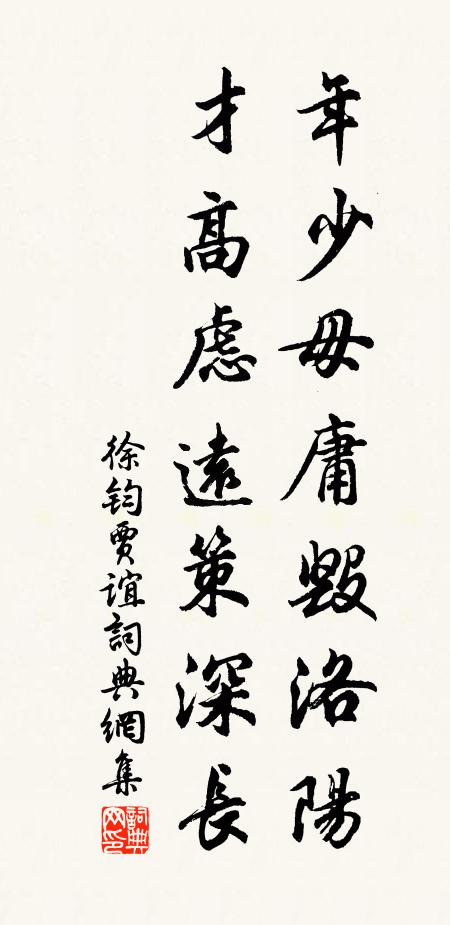 年少毋庸毀洛陽
才高慮遠策深長
徐鈞賈誼詞典網集
詞典網印